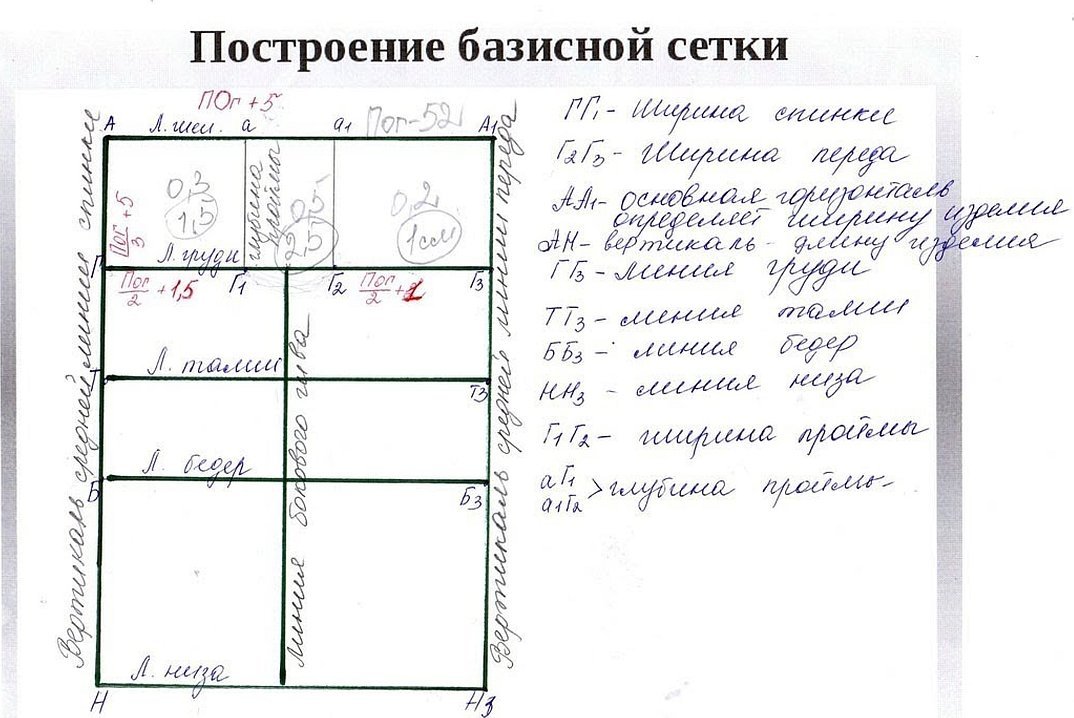 Построение базисной сетки
ПОг + 5
А Л. шеи. а а1 Пог-52 А1
Вертикаль средней линии спинки
Пог/3 + 5
0,3
1,5
глубина проймы
0,2
1см
Вертикаль средней линии переда
Г Л. груди Г1 Г2 Г3
Пог/2 + 1,5
Пог/2 + 1
Л. талии
Т3
линия бокового шва
Л. бедер
Б Б3
Л. низа
Н Н3
ГГ1 - Ширина спинки
Г2Г3 - Ширина переда
АА1 - основная горизонталь
определяет ширину изделия
АН - вертикаль - длину изделия
ГГ3 - линия груди
ТТ3 - линия талии
ББ3 - линия бедер
НН3 - линия низа
Г1Г2 - ширина проймы
аГ1
а1Г2 > глубина проймы -